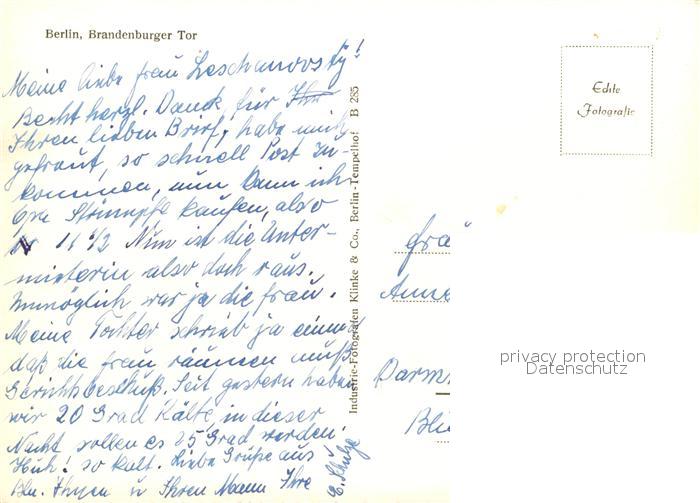 Berlin, Brandenburger Tor
Meine liebe frau Leschanovsky!
Recht herzl. Danck, für Ihr
Ihren lieben Brief, habe mich
gefraut, so schnell Post zu-
kommen, nun kann ich
6 pa Strümpfe kaufen, also
N 11 1/2 Nun ist die Unter-
mieterin also doch raus.
Unmöglich war ja die frau.
Meine Tochter schrieb ja einmal
daß die frau räumen muß
Gerichtsbeschluß. Seit gestern haben
wir 20 Grad Kälte, in dieser
Nacht sollen es 25 Grad werden.
Huh! so kalt. Liebe Grüße aus
Bln. Ihnen u Ihren Mann Ihre
E. Schulze
Industrie-Fotografen Klinke & Co., Berlin-Tempelhof B 285
Echte
Fotografie
frau
Anne
Darm
privacy protection
Datenschutz